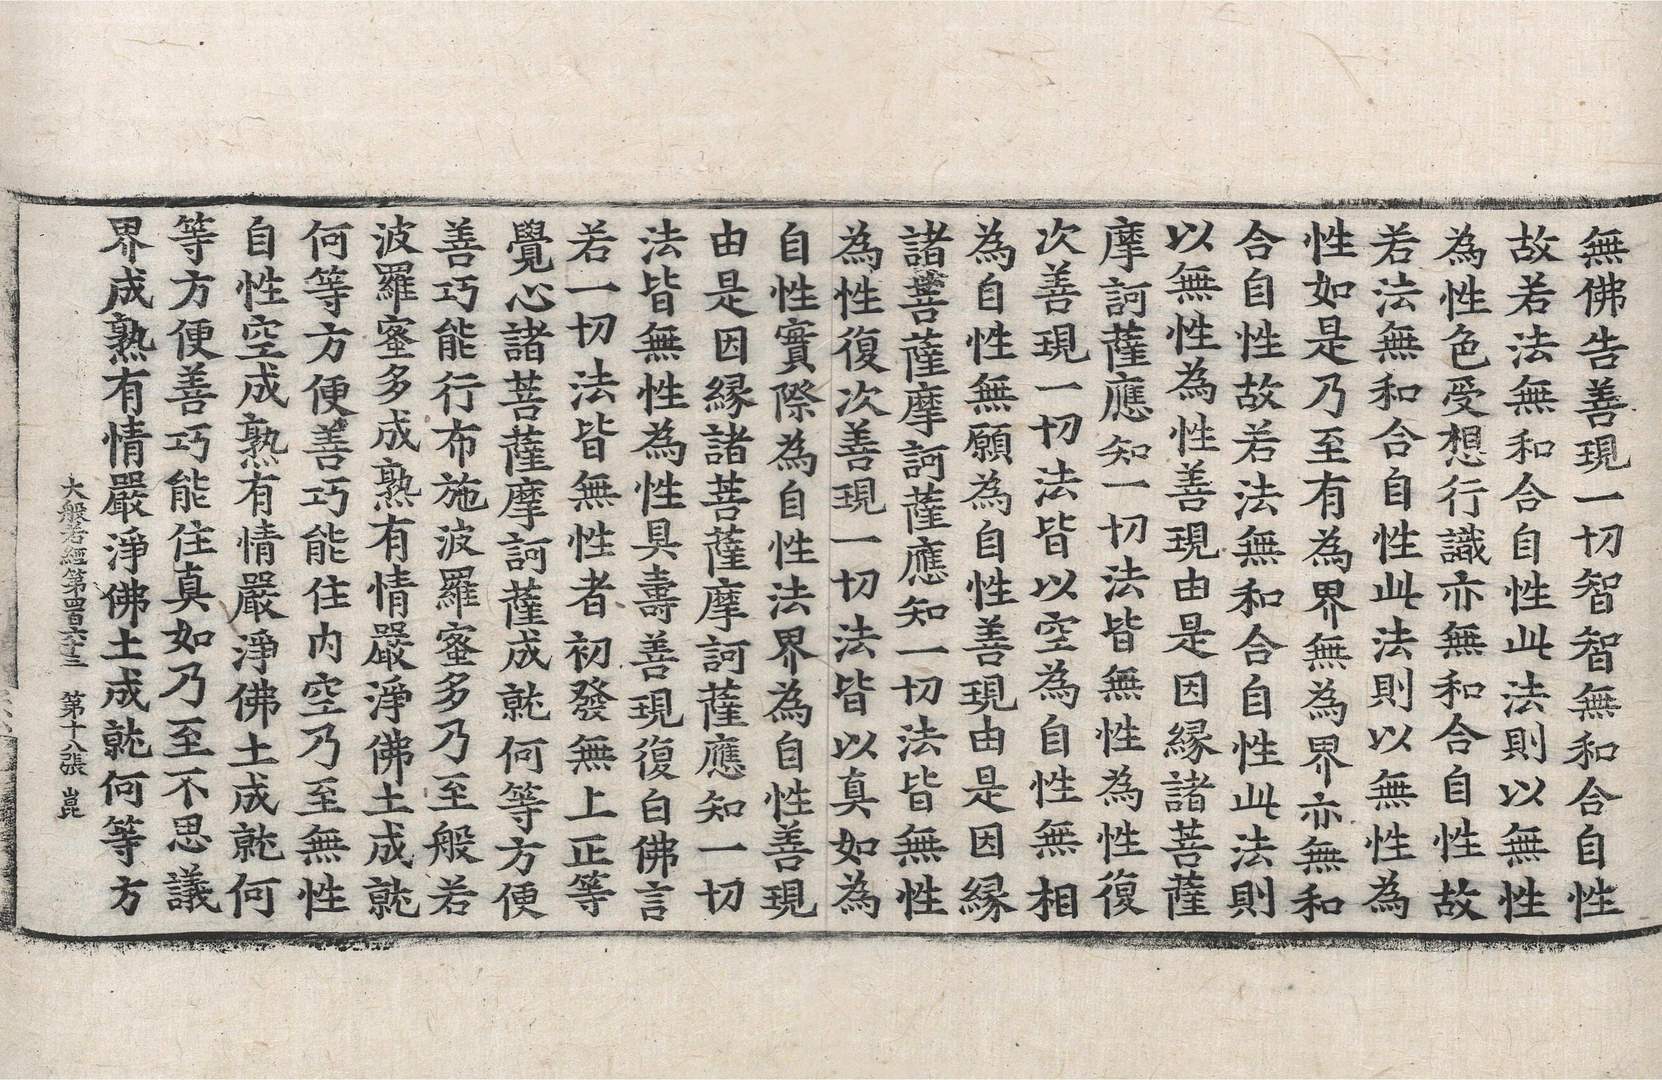 無佛告善現一切智智無和合自性
故若法無和合自性此法則以無性
為性色受想行識亦無和合自性故
若法無和合自性此法則以無性為
性如是乃至有為界無為界亦無和
合自性故若法無和合自性此法則
以無性為性善現由是因緣諸菩薩
摩訶薩應知一切法皆無性為性復
次善現一切法皆以空為自性無相
為自性無願為自性善現由是因緣
諸菩薩摩訶薩應知一切法皆無性
為性復次善現一切法皆以真如為
自性實際為自性法界為自性善現
由是因緣諸菩薩摩訶薩應知一切
法皆無性為性具壽善現復白佛言
若一切法皆無性者初發無上正等
覺心諸菩薩摩訶薩成就何等方便
善巧能行布施波羅蜜多乃至般若
波羅蜜多成熟有情嚴淨佛土成就
何等方便善巧能住內空乃至無性
自性空成熟有情嚴淨佛土成就何
等方便善巧能住真如乃至不思議
界成熟有情嚴淨佛土成就何等方
大般若經第四百六十三　第十八張　崑